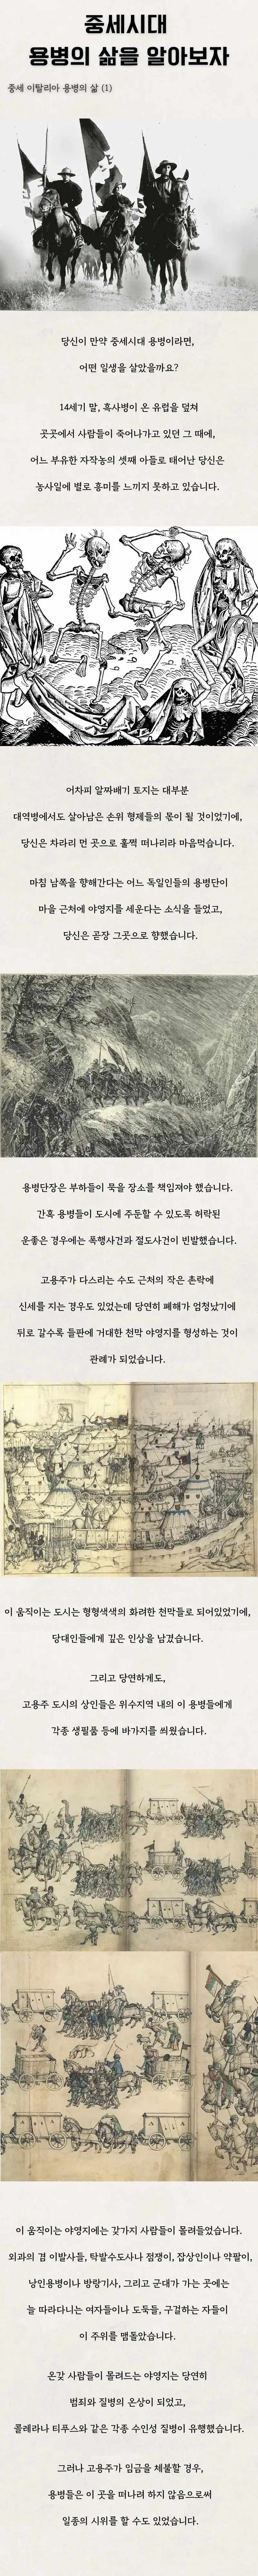 중세시대
용병의 삶을 알아보자
중세 이탈리아 용병의 삶 (1)
당신이 만약 중세시대 용병이라면,
어떤 일생을 살았을까요?
14세기 말, 흑사병이 온 유럽을 덮쳐
곳곳에서 사람들이 죽어나가고 있던 그 때에,
어느 부유한 자작농의 셋째 아들로 태어난 당신은
농사일에 별로 흥미를 느끼지 못하고 있습니다.
어차피 알짜배기 토지는 대부분
대역병에서도 살아남은 손위 형제들의 몫이 될 것이었기에,
당신은 차라리 먼 곳으로 훌쩍 떠나리라 마음먹습니다.
마침 남쪽을 향해간다는 어느 독일인들의 용병단이
마을 근처에 야영지를 세운다는 소식을 들었고,
당신은 곧장 그곳으로 향했습니다.
용병단장은 부하들이 묵을 장소를 책임져야 했습니다.
간혹 용병들이 도시에 주둔할 수 있도록 허락된
운좋은 경우에는 폭행사건과 절도사건이 빈발했습니다.
고용주가 다스리는 수도 근처의 작은 촌락에
신세를 지는 경우도 있었는데 당연히 폐해가 엄청났기에
뒤로 갈수록 들판에 거대한 천막 야영지를 형성하는 것이
관례가 되었습니다.
이 움직이는 도시는 형형색색의 화려한 천막들로 되어있었기에,
당대인들에게 깊은 인상을 남겼습니다.
그리고 당연하게도,
고용주 도시의 상인들은 위수지역 내의 이 용병들에게
각종 생필품 등에 바가지를 씌웠습니다.
이 움직이는 야영지에는 갖가지 사람들이 몰려들었습니다.
외과의 겸 이발사들, 탁발수도사나 점쟁이, 잡상인이나 약팔이,
낭인용병이나 방랑기사, 그리고 군대가 가는 곳에는
늘 따라다니는 여자들이나 도둑들, 구걸하는 자들이
이 주위를 맴돌았습니다.
온갖 사람들이 몰려드는 야영지는 당연히
범죄와 질병의 온상이 되었고,
콜레라나 티푸스와 같은 각종 수인성 질병이 유행했습니다.
그러나 고용주가 임금을 체불할 경우,
용병들은 이 곳을 떠나려 하지 않음으로써
일종의 시위를 할 수도 있었습니다.